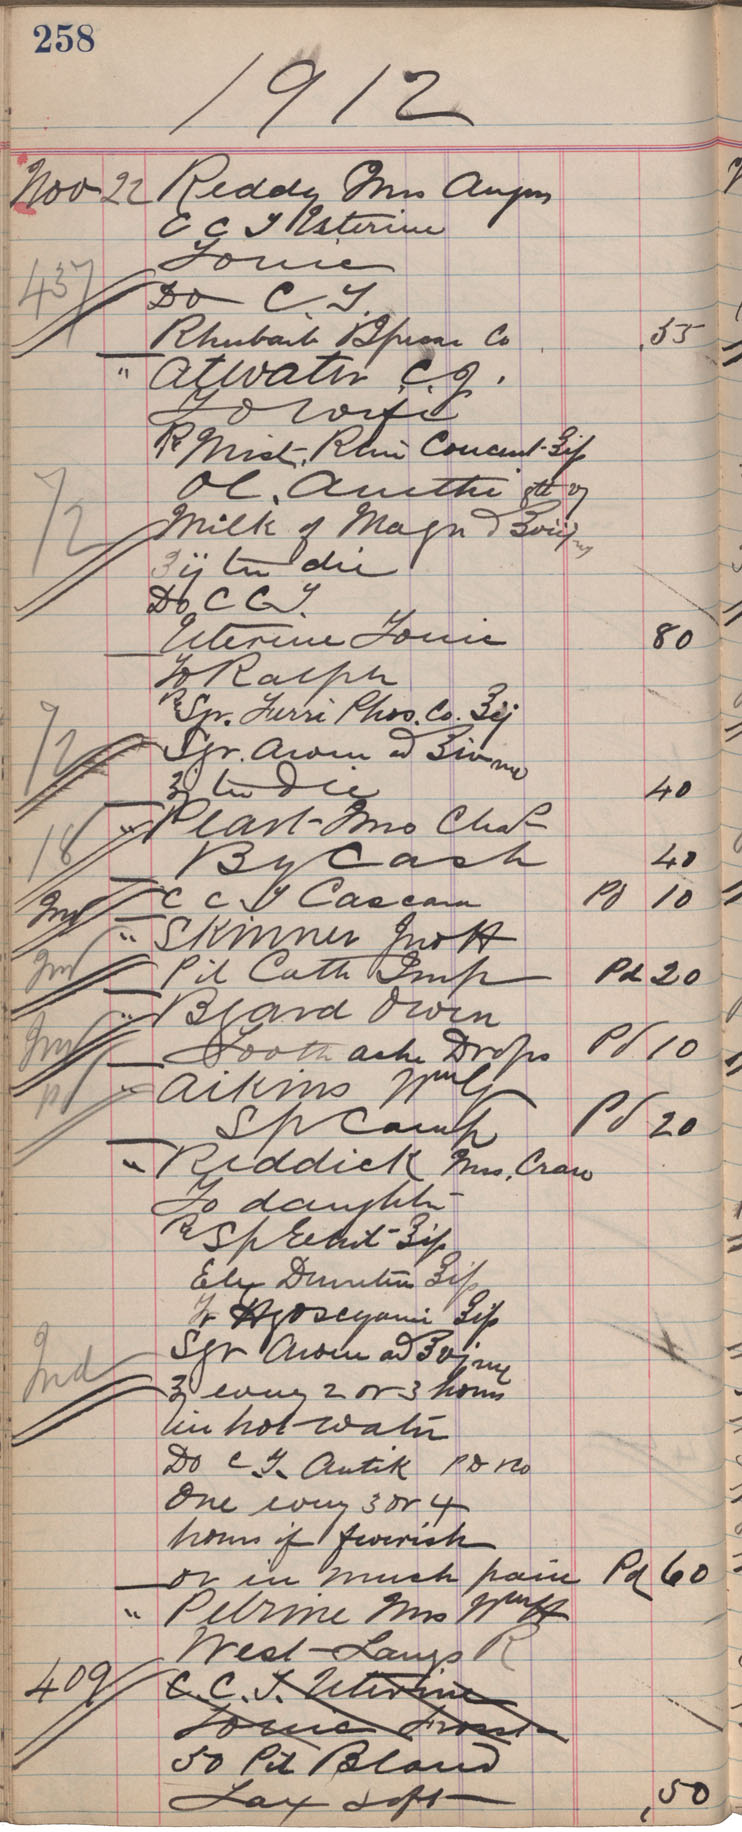 258
1912
Nov 22 Reddy Mrs Angus
C C T Uterine
Tonic
437 Do C. T.
Rhubarb Co .55
" Atwater C. J.
To wife
Rx Mist. Rhei Concent ℥ifs
Ol. Anethi
72 Milk of Magn ad ℥viij
ʒij ter die
Do C C T.
Uterine Tonic 80
To Ralph
Rx Syr. Ferri Phos. Co. ℥ij
72 Syr. Arom ad ℥iv
ʒj ter die 40
" Peart Mrs Chas
18 By Cash 40
C C T Cascara Pd 10
" Skinner Jno H
Pil Cath Imp Pd 20
" Beard Owen
Tooth ache Drops Pd 10
Pd " Aikins Wm G
Sp Camp Pd 20
" Reddick Mrs. Craw
To daughter
Rx
℥ifs
Hyoscyami ℥ifs
Syr Arom ad ℥vj
Ind ʒj every 2 or 3 hours
in hot water
Do C. T. Antik no
One every 3 or 4
hours if feverish
or in much pain Pd 60
" Petrine Mrs Wm H
West Langs R
409 C. C. T. Uterine
Tonic
50 Pil Blaud
Lax soft .50